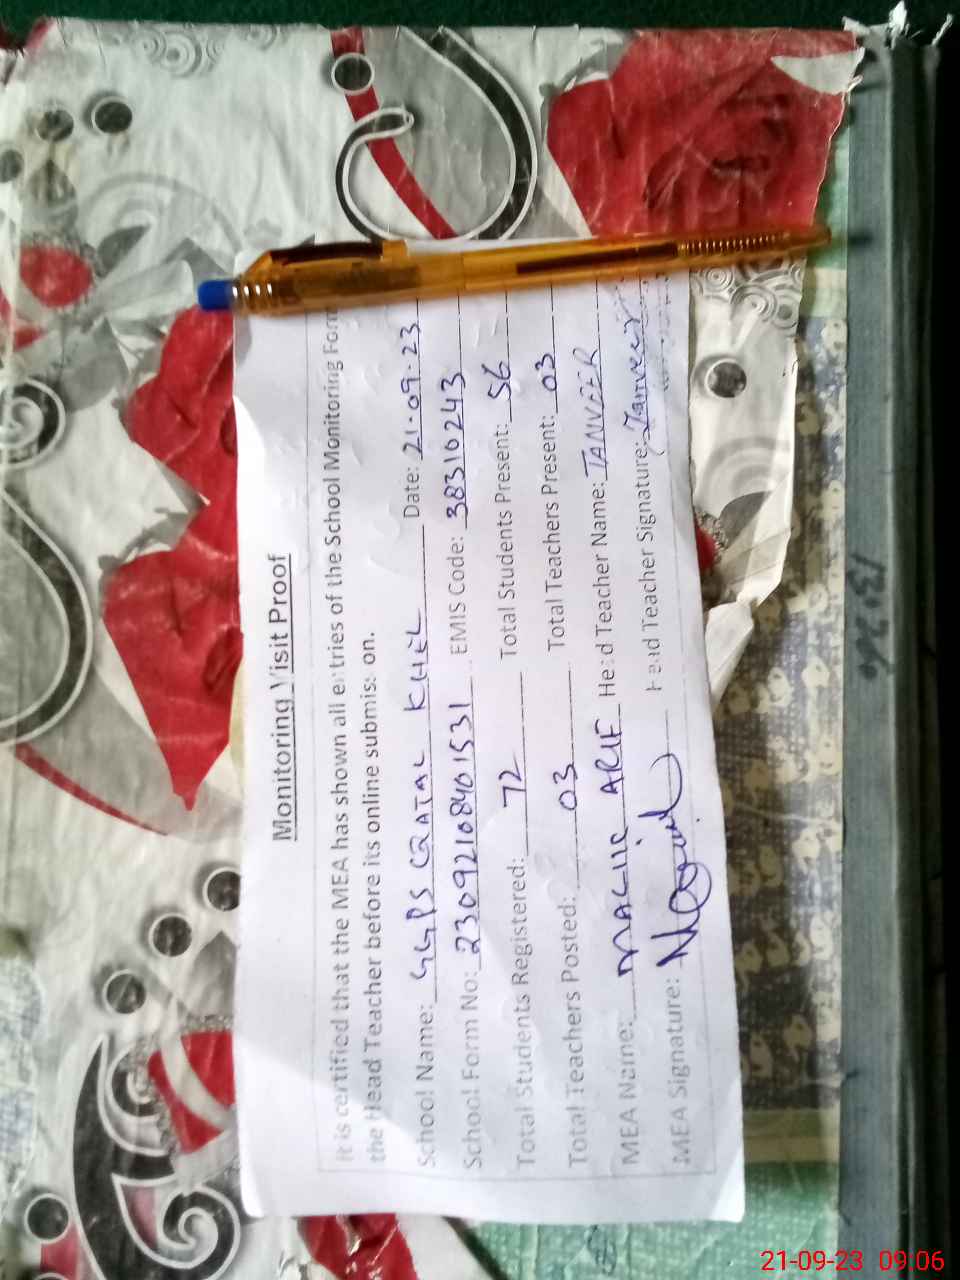 Monitoring Visit Proof
It is certified that the MEA has shown all entries of the School Monitoring Form
the Head Teacher before its online submission.
School Name: GGPS CRATAL KHEL Date: 21.09.23
School Form No: 23092108401531 EMIS Code: 38310243
Total Students Registered: 72 Total Students Present: 56
Total Teachers Posted: 03 Total Teachers Present: 03
MEA Name: ARIF Head Teacher Name: TANVEER
MEA Signature: Head Teacher Signature: Tanveer
21-09-23 09:06